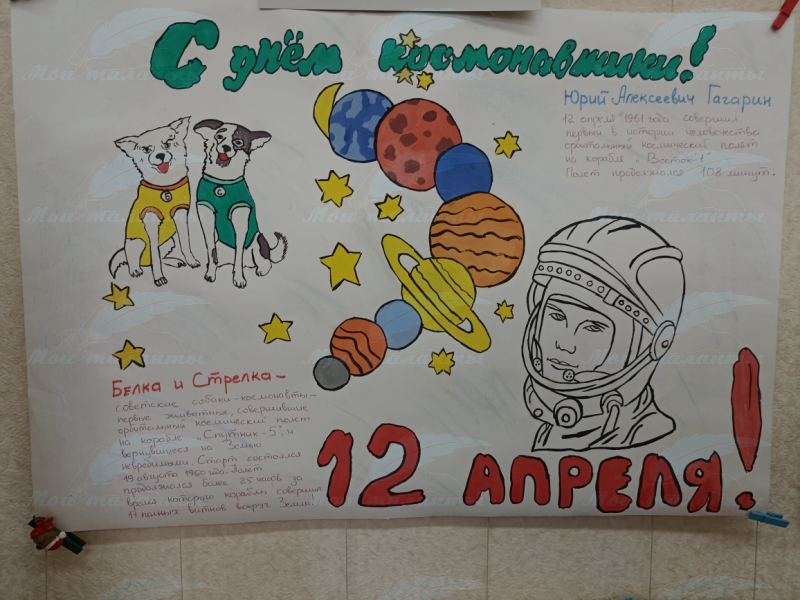 С днём космонавтики!
Юрий Алексеевич Гагарин
12 апреля 1961 года совершил
первый в истории человечества
орбитальный космический полет
на корабле "Восток-1"
Полет продолжался 108 минут.
Б
С
Белка и Стрелка -
советские собаки-космонавты -
первые животные, совершившие
орбитальный космический полет
на корабле "Спутник-5" и
вернувшиеся на Землю
невредимыми. Старт состоялся
19 августа 1960 года. Полет
продолжался более 25 часов за
время которого корабль совершил
17 полных витков вокруг Земли!
12 АПРЕЛЯ!
Мои таланты